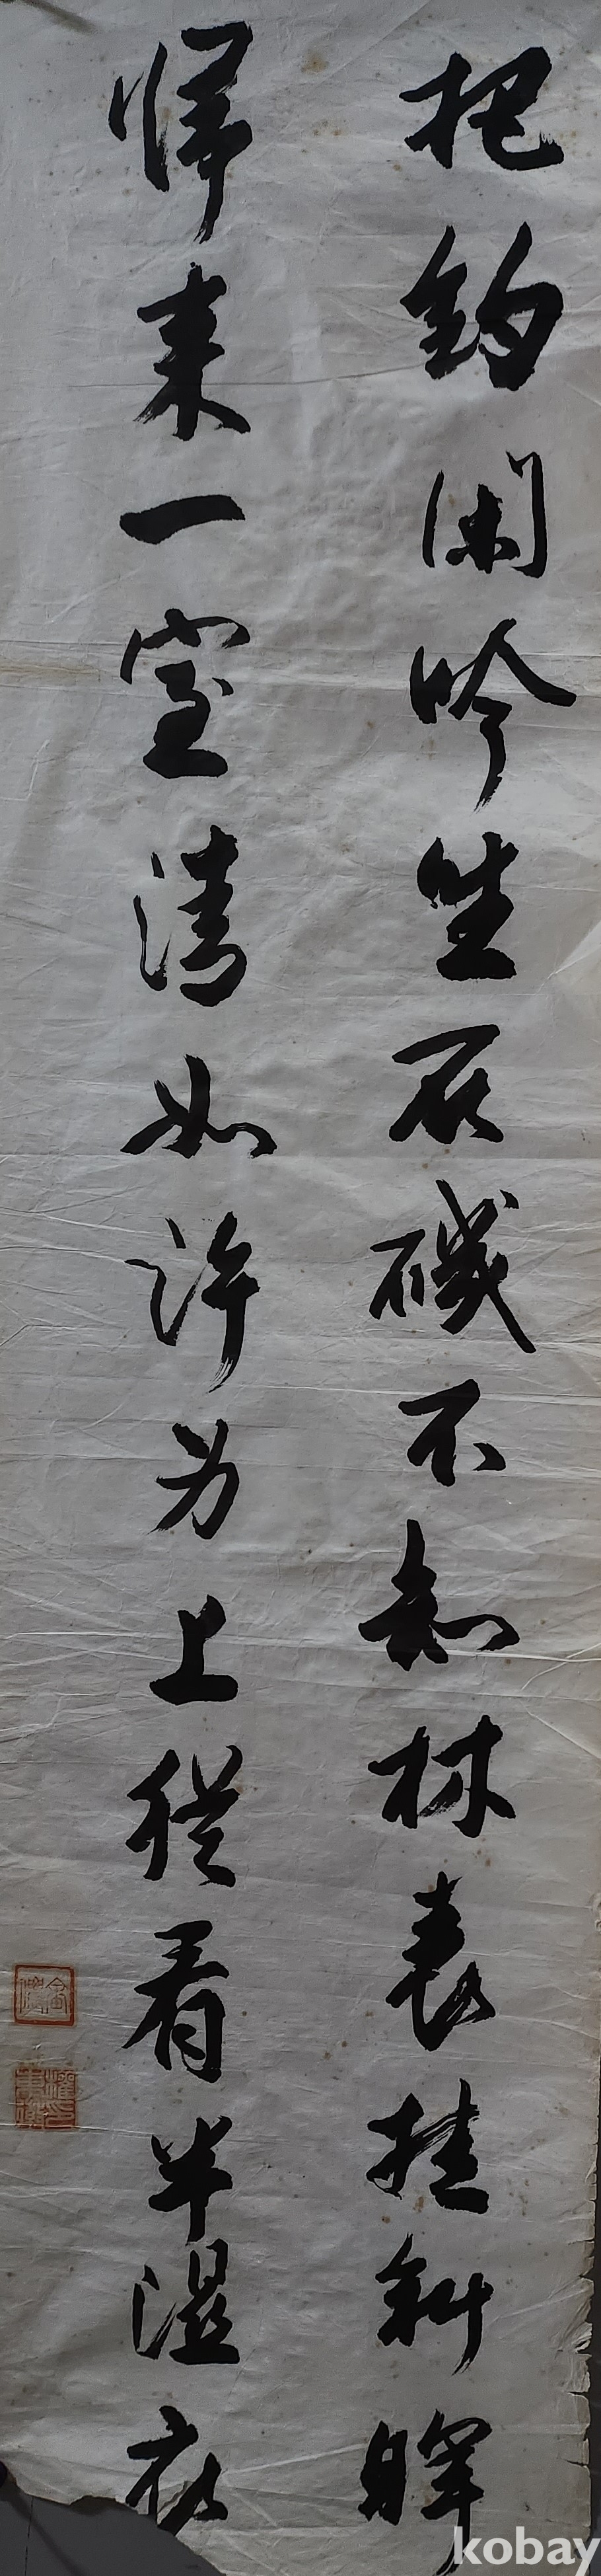 把釣閑吟坐石磯不知林表挂斜暉
歸來一室清如許為上從看半濕衣
kobay